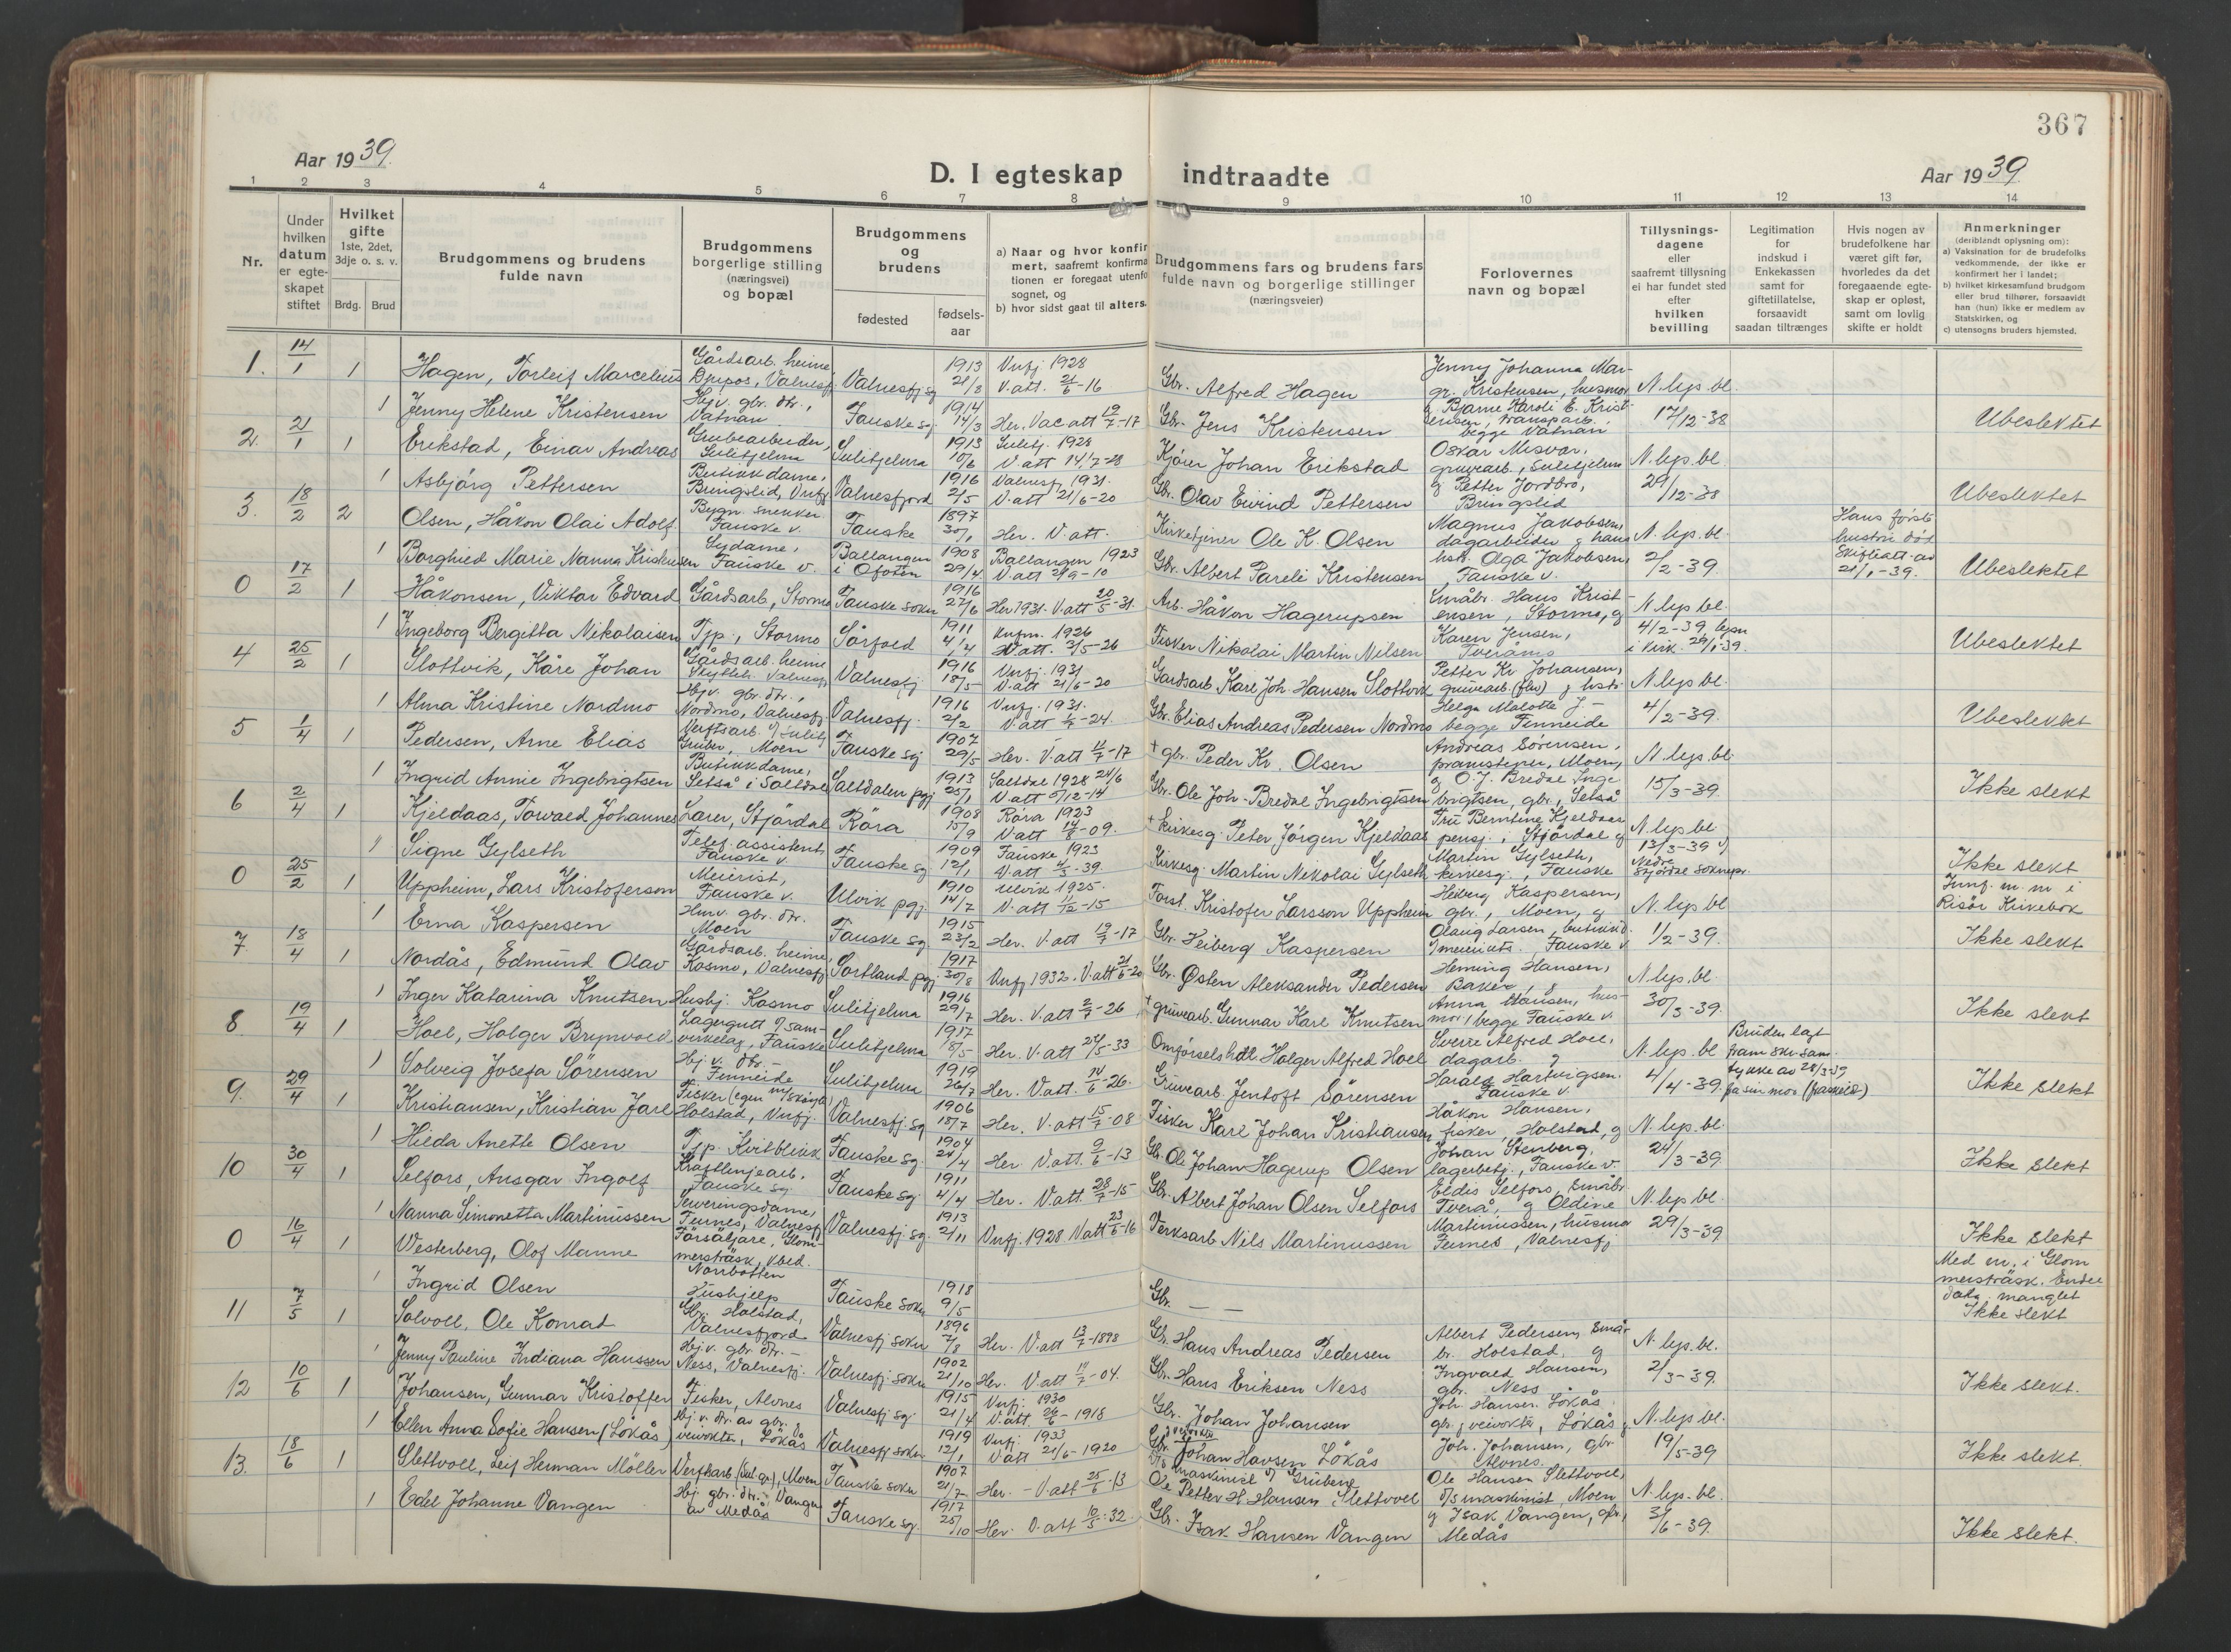 367
Aar 1939.
D. I egteskap indtraadte
Aar 1939
1 2 3 4 5 6 7 8 9 10 11 12 13 14
Nr.
Under hvilken datum er egte-skapet stiftet
Hvilket gifte 1ste, 2det, 3dje o. s. v.
Brdg. Brud
Brudgommens og brudens fulde navn
Brudgommens borgerlige stilling (næringsvei) og bopæl
Brudgommens og brudens
fødested
fødsels-aar
a) Naar og hvor konfir
mert, saafremt konfirma
tionen er foregaat utenfo
sognet, og
b) hvor sidst gaat til alters.
Brudgommens fars og brudens fars fulde navn og borgerlige stillinger (næringsveier)
Forlovernes navn og bopæl
Tillysnings-dagene eller saafremt tillysning ei har fundet sted efter hvilken bevilling
Legitimation for indskud i Enkekassen samt for giftetillatelse, forsaavidt saadan tiltrænges
Hvis nogen av brudefolkene har været gift før, hvorledes da det foregaaende egte-skap er opløst, samt om lovlig skifte er holdt
Anmerkninger
(deriblandt oplysning om):
a) Vaksination for de brudefolks vedkommende, der ikke er konfirmert her i landet;
b) hvilket kirkesamfund brudgom eller brud tilhører, forsaavidt han (hun) ikke er medlem av Statskirken, og
c) utensogns bruders hjemsted.
1. 14/1 1 Hagen, Torleif Marcelius Gårdsarb. heime Valnesfj. sg 1913 21/8 Vnfj 1928 V.att. 21/6-16 Gbr. Alfred Hagen Jenny Johanna Mar-gr. Kristensen, husmor N. lys. bl.
1 Jenny Helene Kristensen Hj.v. gbr. dtr., Vatnan Fauske sg. 1914 14/3 Her. Vac att 19/7-17 Gbr. Jens Kristensen 17/12-38 Ubeslektet
2. 21/1 1 Erikstad, Einar Andreas Grubearbeider, Sulitjelma Sulitjelma 1913 10/6 Sulitj. 1928 V. att 14/7-28 Kjører Johan Erikstad Oskar Misvær, gruvearb., Sulitjelma N. lys. bl.
1 Asbjørg Pettersen Butikkdame, Bringslid, Vnfj Valnesfjord 1916 2/5 Valnesfj. 1931. V. att 21/6-20 Gbr. Olav Eivind Pettersen g Petter Jordbro, Bringslid 29/12-38 Ubeslektet
3. 18/2 2 Olsen, Håkon Olai Adolf Bygn. snekker Fauske v. Fauske 1897 30/1 Her. V. att. Kirketjener Ole K. Olsen Magnus Jakobsen, dagarbeider g hans N. lys. bl. Hans første hustru død Skifteatt. av 21/1-39.
1 Borghild Marie Nanna Kristensen Sydame, Fauske v. Ballangen i Ofoten 1908 29/4 Ballangen 1923 V. att 21/9-10 Gbr. Albert Pareli Kristensen hstr. Olga Jakobsen, Fauske v. 2/2-39. Ubeslektet
0 17/2 1 Håkonsen, Viktor Edvard Gårdsarb., Stormo Fauske sokn 1916 27/6 Her 1931. V. att 20/5-31. Arb. Håkon Hagerupsen Småbr. Hans Krist-ensen, Stormo, g N. lys. bl.
1 Ingeborg Bergitta Nikolaisen Tjp., Stormo Sörfold 1911 4/4 Knfm. 1926 V. att. 3/5-26 Fisker Nikolai Martin Nilsen Karen Jensen, Tveråmo 4/2-39 i kirk. 29/1-39. Ubeslektet
4 25/2 1 Slottvik, Kåre Johan Gårdsarb. heime Valnesfj. 1916 18/5 Vnfj. 1931 V. att 21/6-20 Gårdsarb. Karl Joh. Hansen Slottvik Petter Kr. Johansen, gruvearb. g hstr. N. lys. bl.
1 Alma Kristine Nordmo Hj.v. gbr. dtr., Nordmo, Valnesfj. Valnesfj. 1916 2/2 Vnfj. 1931. V. att 1/7-24. Gbr. Elias Andreas Pedersen Nordmo Helga Malotte J. begge Finneide 4/2-39. Ubeslektet
5 1/4 1 Pedersen, Arne Elias Verftsarb. v/ Sulitj. Gruber, Moen Fauske sg 1907 29/5 Her. V. att 11/7-17 + gbr. Peder Kr. Olsen Andreas Sørensen, pramstyrer, Moen, N. lys. bl.
1 Ingrid Annie Ingebrigtsen Butikkdame, Setså i Saltdal Saltdalen pgj 1913 25/1 Saltdal 1928 24/6 V. att 5/12-14 Gbr. Ole Joh. Bredal Ingebrigtsen g O. J. Bredal Inge-brigtsen, gbr., Setså 15/3-39. Ikke slekt
6 2/4 1 Kjeldaas, Torvald Johannes Lærer, Stjørdal Röra 1908 15/9 Röra 1923 V. att 14/8-09. + kirkesg. Peter Jörgen Kjeldaas Fru Berntine Kjeldaas pensj. i Stjördal g N. lys. bl.
" Signe Gylseth Telef. assistent, Fauske v. Fauske sg 1909 12/1 Fauske 1923 V. att 4/3-39. Kirkesg. Martin Nikolai Gylseth Martin Gylseth, kirkesg., Fauske 13/3-39 v/ Nedre Stjördal soknepr. Ikke slekt
0 25/2 1 Uppheim, Lars Kristoferson Meierist, Fauske v. Ulvik pgj. 1910 14/7 Ulvik 1925. V. att 11/12-15 Forst. Kristofer Larsson Uppheim Heiberg Kaspersen, gbr., Moen, g N. lys. bl Innf. m. nr i Risör Kirkebok
1 Erna Kaspersen Hmv. gbr. dtr. Moen Fauske sg. 1915 23/2 Her. V. att 19/7-17 Gbr. Heiberg Kaspersen Olaug Larsen, butikkd. v/ meieriuts. Fauske v. 1/2-39. Ikke slekt
7. 18/4 1 Nordås, Edmund Olav Gårdsarb. heime, Kosmo, Valnesfj Sortland pgj. 1917 30/8 Vnfj 1932. V. att 21/6-20 Gbr. Østen Aleksander Pedersen Heming Hansen, Baker, g N. lys. bl.
1 Inger Katarina Knutsen Husbj. Kosmo Sulitjelma 1916 29/7 Her. V. att 2/7-26 + gruvearb. Gunnar Karl Knutsen Anna Hansen, hus-mor, begge Fauske v. 30/3-39. Ikke slekt
8. 19/4 1 Hoel, Holger Brynvold Lagergutt v/ sam-virkelag, Fauske Sulitjelma 1917 8/5 Her. V. att 24/5-33 Omførselshdl. Holger Alfred Hoel Sverre Alfred Hoel, dagarb. g N. lys. bl Bruden lagt fram skr. sam-tykke av 28/3-39 fra sin mor
1 Solveig Josefa Sörensen Hj.v. dtr. Finneide Sulitjelma 1919 26/7 Her. V. att. 14/6-26. Gruvearb. Jentoft Sörensen Harald Hartvigsen. Fauske v. 4/4-39. Ikke slekt
9. 29/4 1 Kristiansen, Kristian Jarl Fisker Holstad, Vnfj. Valnesfj. sg 1906 18/7 Her. V. att 15/7-08 Fisker Karl Johan Kristiansen Håkon Hansen, fisker, Holstad, g N. lys. bl.
1 Hilda Anette Olsen Tjp. Kvitblikk Fauske sg. 1904 24/4 Her. V. att. 9/6-13 Gbr. Ole Johan Hagerup Olsen Johan Stenberg, lagerbetj., Fauske v. 24/3-39 Ikke slekt
10 30/4 1 Selfors, Ansgar Ingolf Kraftlinjearb., Fauske sg Fauske sg. 1911 4/4 Her. V. att. 28/7-15 Gbr. Albert Johan Olsen Selfors Eldis Selfors, småbr. Tverå, g Oldine N. lys bl.
1 Nanna Simonetta Martinussen Serveringsdame, Furnes, Valnesfj Valnesfj. sg. 1913 2/11 Vnfj. 1928 V. att 23/6-16 Verksarb. Nils Martinussen Martinussen, husmor Furnes, Valnesfj 29/3-39 Ikke slekt
0 16/4 1 Westerberg, Olof Manne Försäljare, Glom-mersträsk, Norrbotten Med m. i Glom mersträsk. Endel data manglet
1 Ingrid Olsen Hushjelp Fauske sokn 1918 9/5 Gbr. — — Ikke slekt
11 7/5 1 Solvoll, Ole Konrad Gbr. Holstad, Valnesfjord Valnesfj. sokn 1896 7/8 Her. V. att 13/7-1898 Gbr. Hans Andreas Pedersen Albert Pedersen, små-br. Holstad, g N. lys. bl.
1 Jenny Pauline Indiana Hanssen Hj.v. gbr. dtr. Ness, Valnesfj. Valnesfj. sokn 1902 21/10 Her. V. att 19/7-04. Gbr. Hans Eriksen Ness Ingvald Hansen, gbr. Ness 2/3-39. Ikke slekt.
12 10/6 1 Johansen, Gunnar Kristoffer Fisker, Alvnes Valnesfj sg. 1915 21/4 Vnfj. 1930 V. att. 26/6-1918 Gbr. Johan Johansen Joh. Hansen Lökås gbr. g veivokter, Lökås g N. lys. bl.
1 Ellen Anna Sofie Hansen (Lökås) Hj.v. dtr. av gbr. g veivokter, Lökås Valnesfj. sokn 1919 12/1 Vnfj. 1933 V. att 21/6-1920 Gbr. g veivokter Johan Hansen Lökås Joh. Johansen, gbr Alvnes. 19/5-39 Ikke slekt.
13. 18/6 1 Slettvoll, Leif Herman Möller Verftsarb. (Sul. gr.), Moen Fauske sokn 1907 21/7 Her. - V. att 25/6-13 D/s maskinist v/ Grubene Ole Petter H. Hansen Slettvoll Ole Hansen Slettvoll, d/s maskinist, Moen N. lys. bl.
1 Edel Johanne Vangen Hj. gbr. dtr. - Vangen av Medås Fauske sg. 1917 25/10 Her. V. att 10/5-32. Gbr. Isak Hansen Vangen g Isak Vangen, gbr., Medås 3/6-39. Ikke slekt.